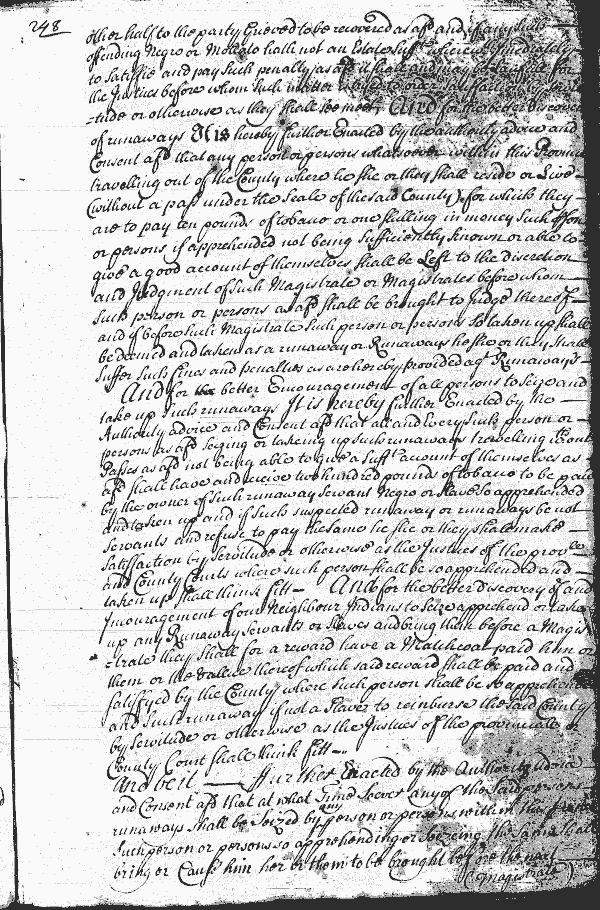 248
other half to the party Grieved to be recovered as afd and if any such
offending Negro or Mollato shall not an Estate Sufft whereof immediately
to Satisfie and pay such penalty as afd it shall and may be Lawfull for
the Justices before whom such matter is
-tude or otherwise as they shall see meet, And for the better discovery
of runaways It is hereby further Enacted by the authority advice and
Consent afd that any person or persons whatsoever within this Province
travelling out of the County where he she or they shall reside or Live
(without a pass under the Seale of the said County) for which they
are to pay ten pounds of tobacco or one shilling in money Such person
or persons if apprehended not being sufficiently known or able to
give a good account of themselves shall be Left to the discretion
and Judgment of such Magistrate or Magistrates before whom
Such person or persons as afd shall be brought to Judge thereof
and if before such Magistrate such person or persons so taken up shall
be deemed and taken as a runaway or Runaways he she or they shall
suffer such fines and penalties as are hereby provided agt Runaways
And for the better Encouragement of all persons to seize and
take up such runaways It is hereby further Enacted by the
Authority advice and Consent afd that all and every such person or
persons as afd seizing or takeing up such runaways travelling without
Passes as afd not being able to give a Sufft account of themselves as
afd shall have and receive two hundred pounds of tobacco to be paid
by the owner of such runaway servant Negro or slave so apprehended
and taken up and if such suspected runaway or runaways be not
servants and refuse to pay the same he she or they shall make
Satisfaction by servitude or otherwise as the Justices of the provle
and County Courts where such person shall be so apprehended and
taken up shall think fitt And for the better discovery of and
Incouragement of our Neighbour Indians to seize apprehend or take
up any Runaway servants or Slaves and bring them before a Magis
-trate they shall for a reward have a Matchcoat paid him or
them or the value thereof which said reward shall be paid and
satisfyed by the County where such person shall be so apprehended
and such runaway if not a Slave to reimburse the said County
by servitude or otherwise as the Justices of the provinciale or
County Court shall think fitt
And be it further Enacted by the Authority advice
and Consent afd that at what Time soever any of the said persons
runaways shall be Seized by any person or persons within this province
Such person or persons so apprehending or Seizeing the same shall
bring or Cause him her or them to be brought before the next
Magistrate